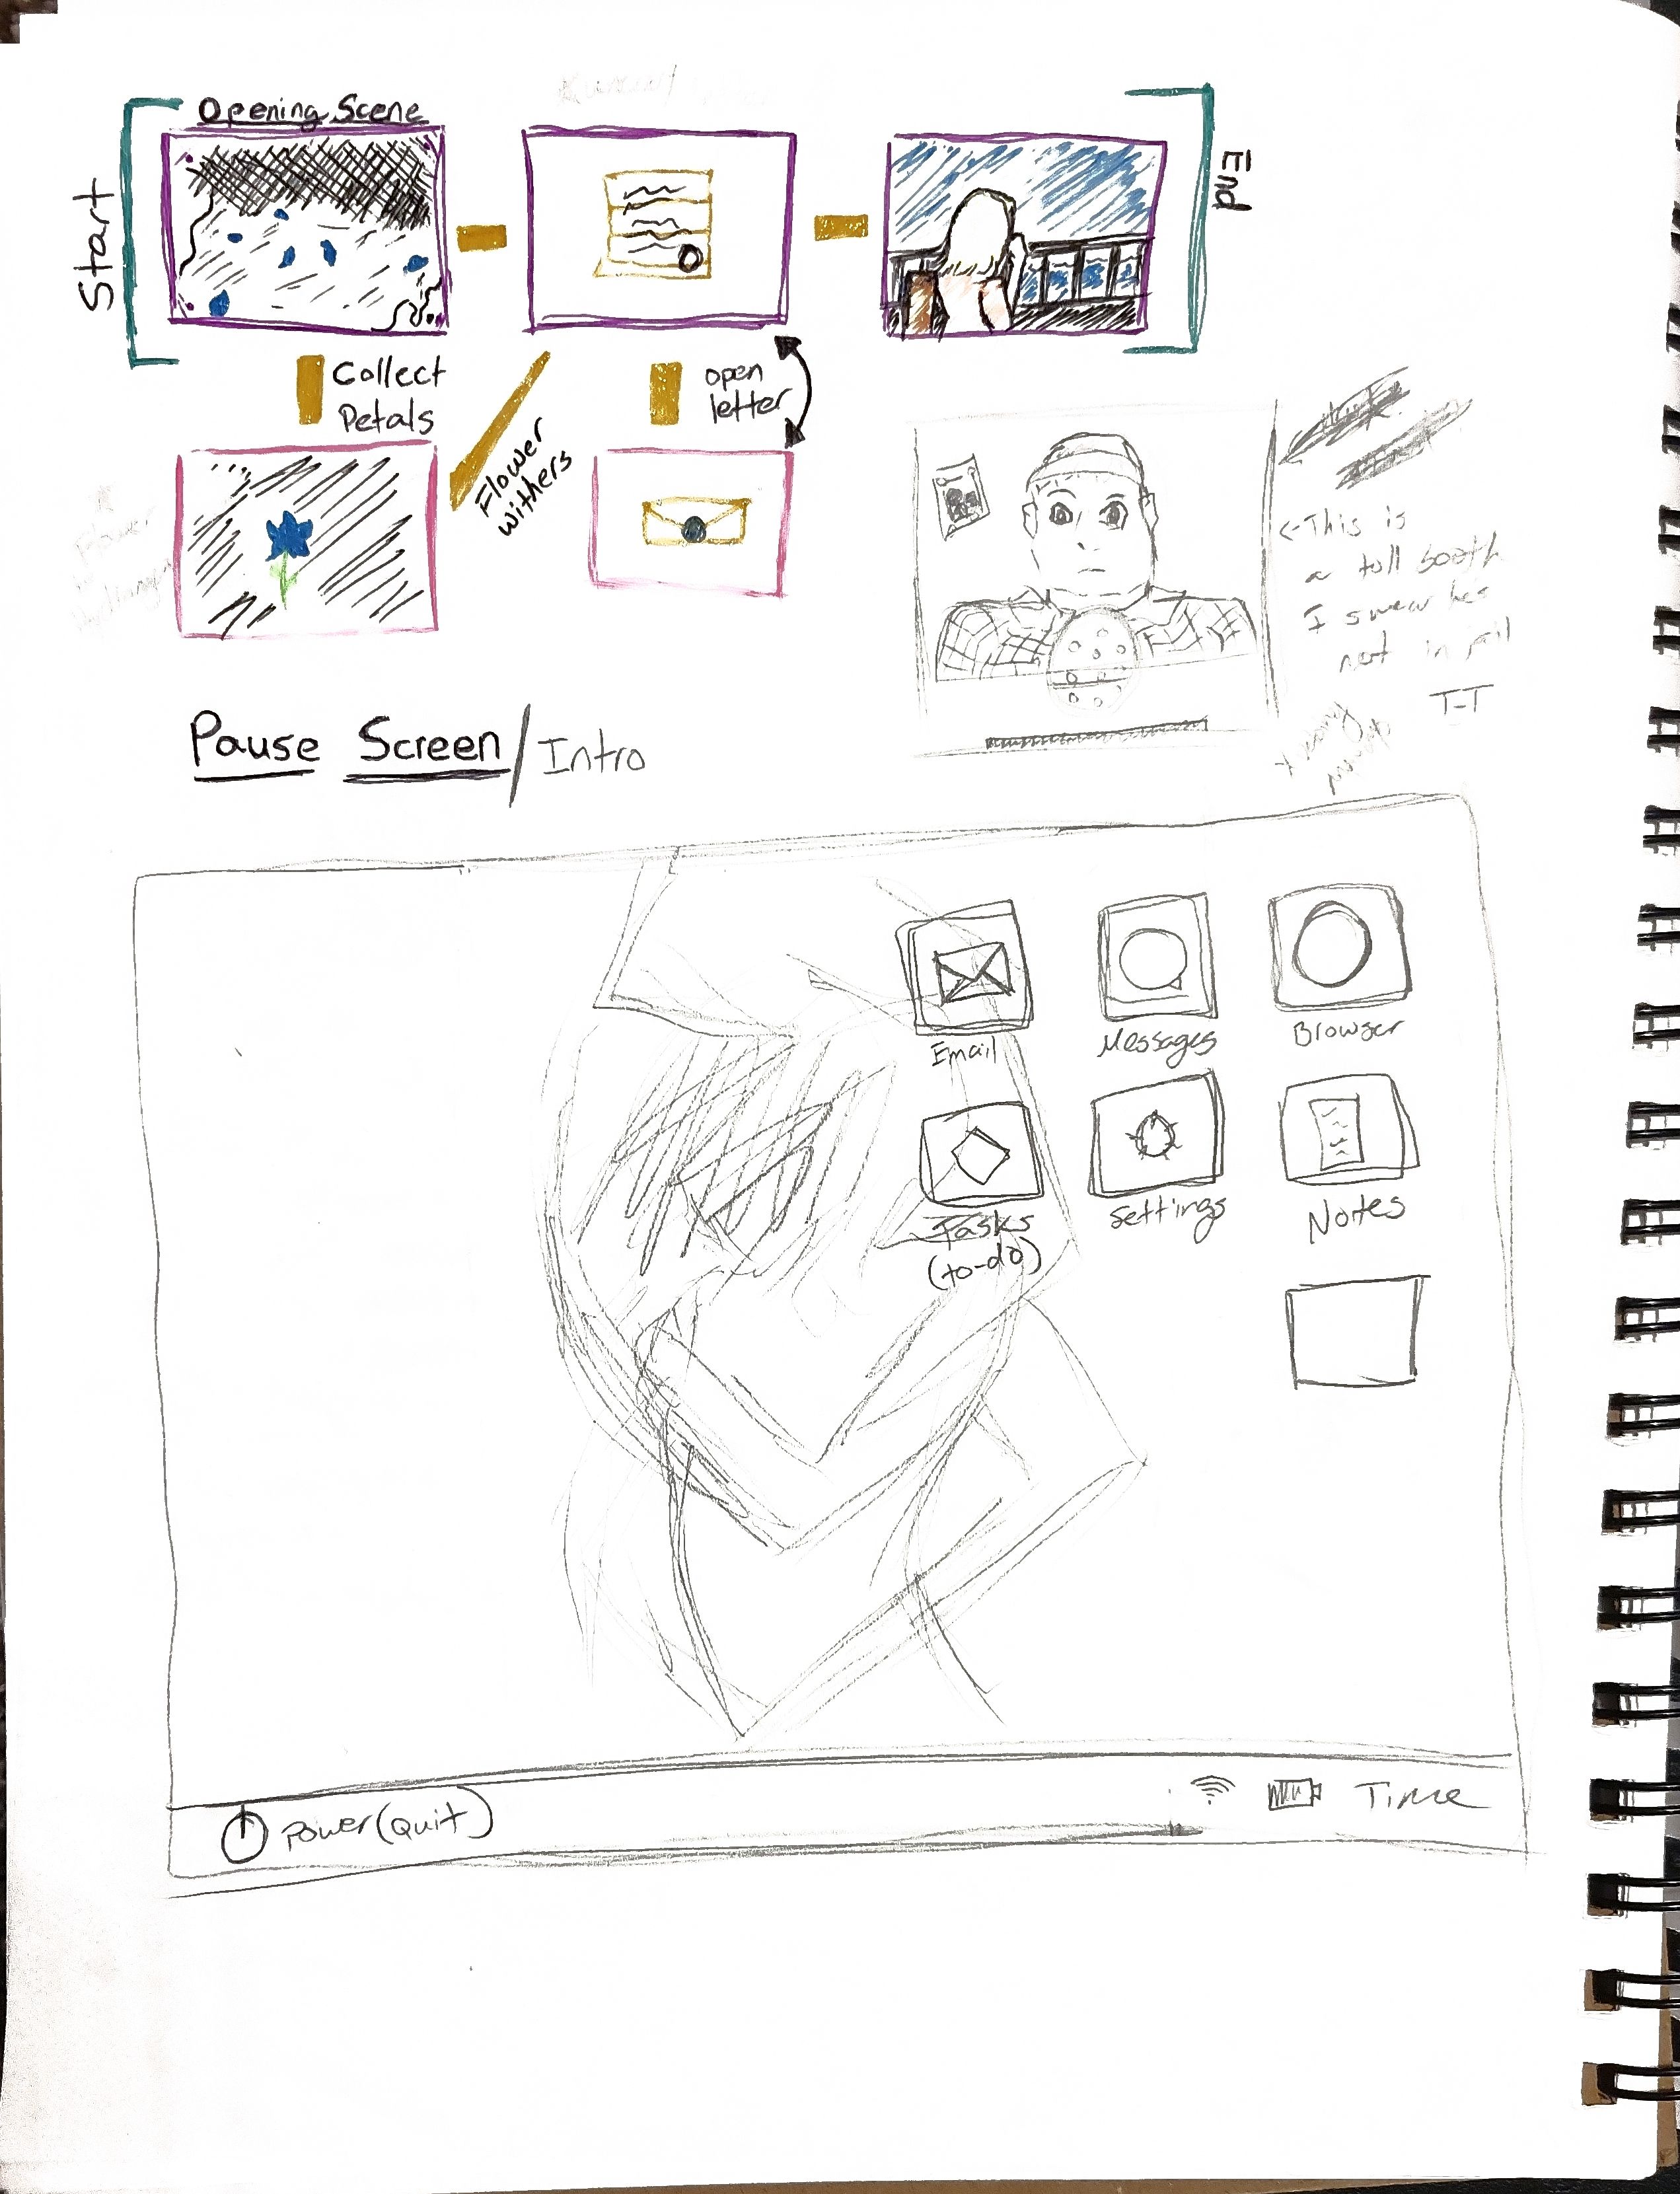 Opening Scene
Start
End
Collect
Petals
Flower
withers
open
letter
<-This is
a toll booth
I swear hes
not in jail
T-T
Pause Screen/Intro
Email
Messages
Browser
Tasks
(to-do)
Settings
Notes
Power(Quit)
Time